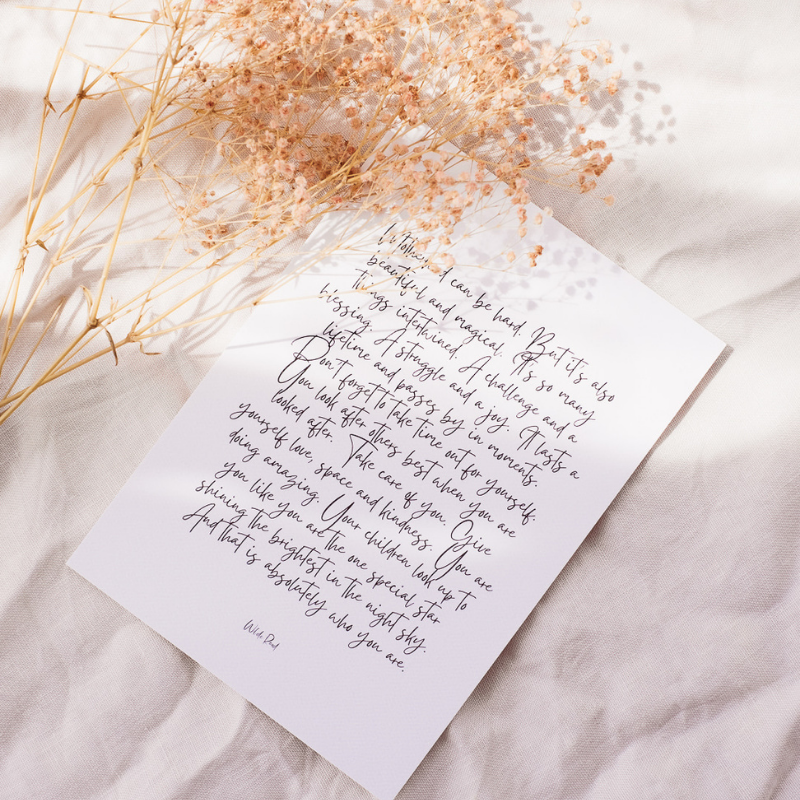 can be hard. But it's also
beautiful and magical. It's so many
things intertwined. A challenge and a
blessing. A struggle and a joy. It lasts a
lifetime and passes by in moments.
Don't forget to take time out for yourself.
You look after others best when you are
looked after. Take care of you. Give
yourself love, space and kindness. You are
doing amazing. Your children look up to
you like you are the one special star
shining the brightest in the night sky.
And that is absolutely who you are.